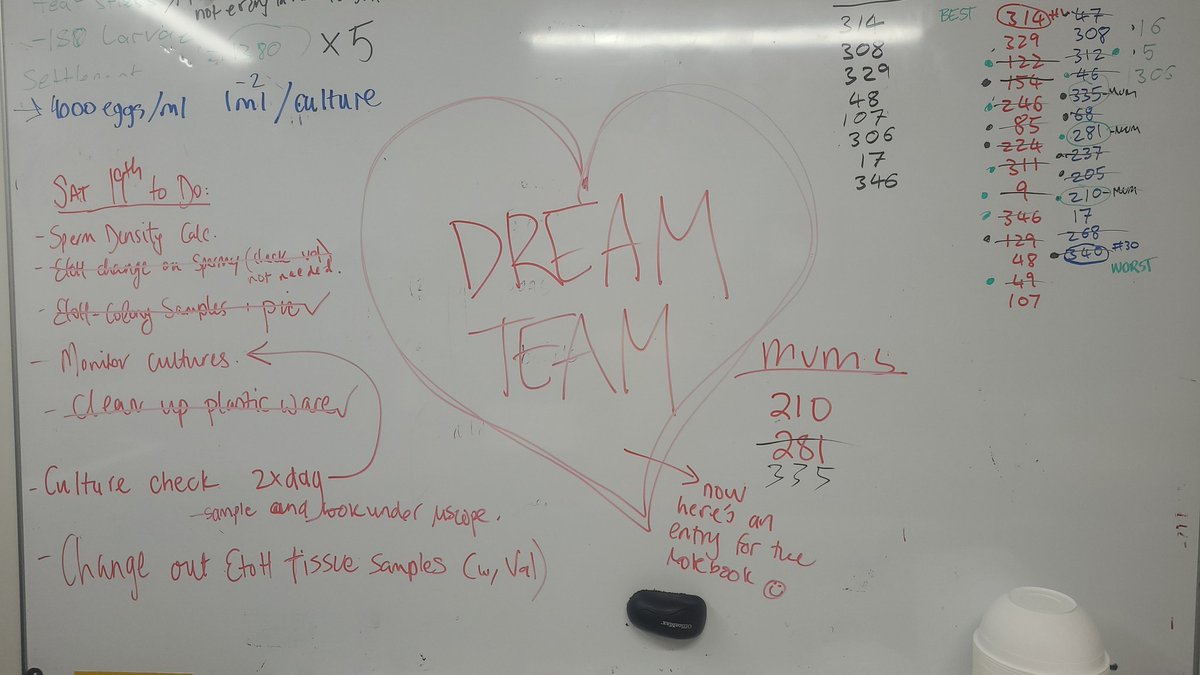 not every
-150 Larvae
1380 x5
Settlement
→ 4000 eggs/ml 1ml⁻²/culture
SAT 19th to Do:
- Sperm Density Calc.
- EtoH change on Spawny (check val)
not needed.
- EtoH-Colony Samples + pic ✓
- Monitor cultures.
- Clean up plastic ware ✓
- Culture check 2xday
- sample and look under μscope.
- Change out EtoH tissue samples (w, Val)
DREAM
TEAM
now
here's an
entry for the
Notebook ☺
mums
210
281
335
314
308
329
48
107
306
17
346
BEST
314
329
122
154
246
85
224
311
9
346
129
48
49
107
47
308
312
46
335-mum
68
281-mum
237
205
210-mum
17
268
340 #30
WORST
16
5
305
OfficeMax